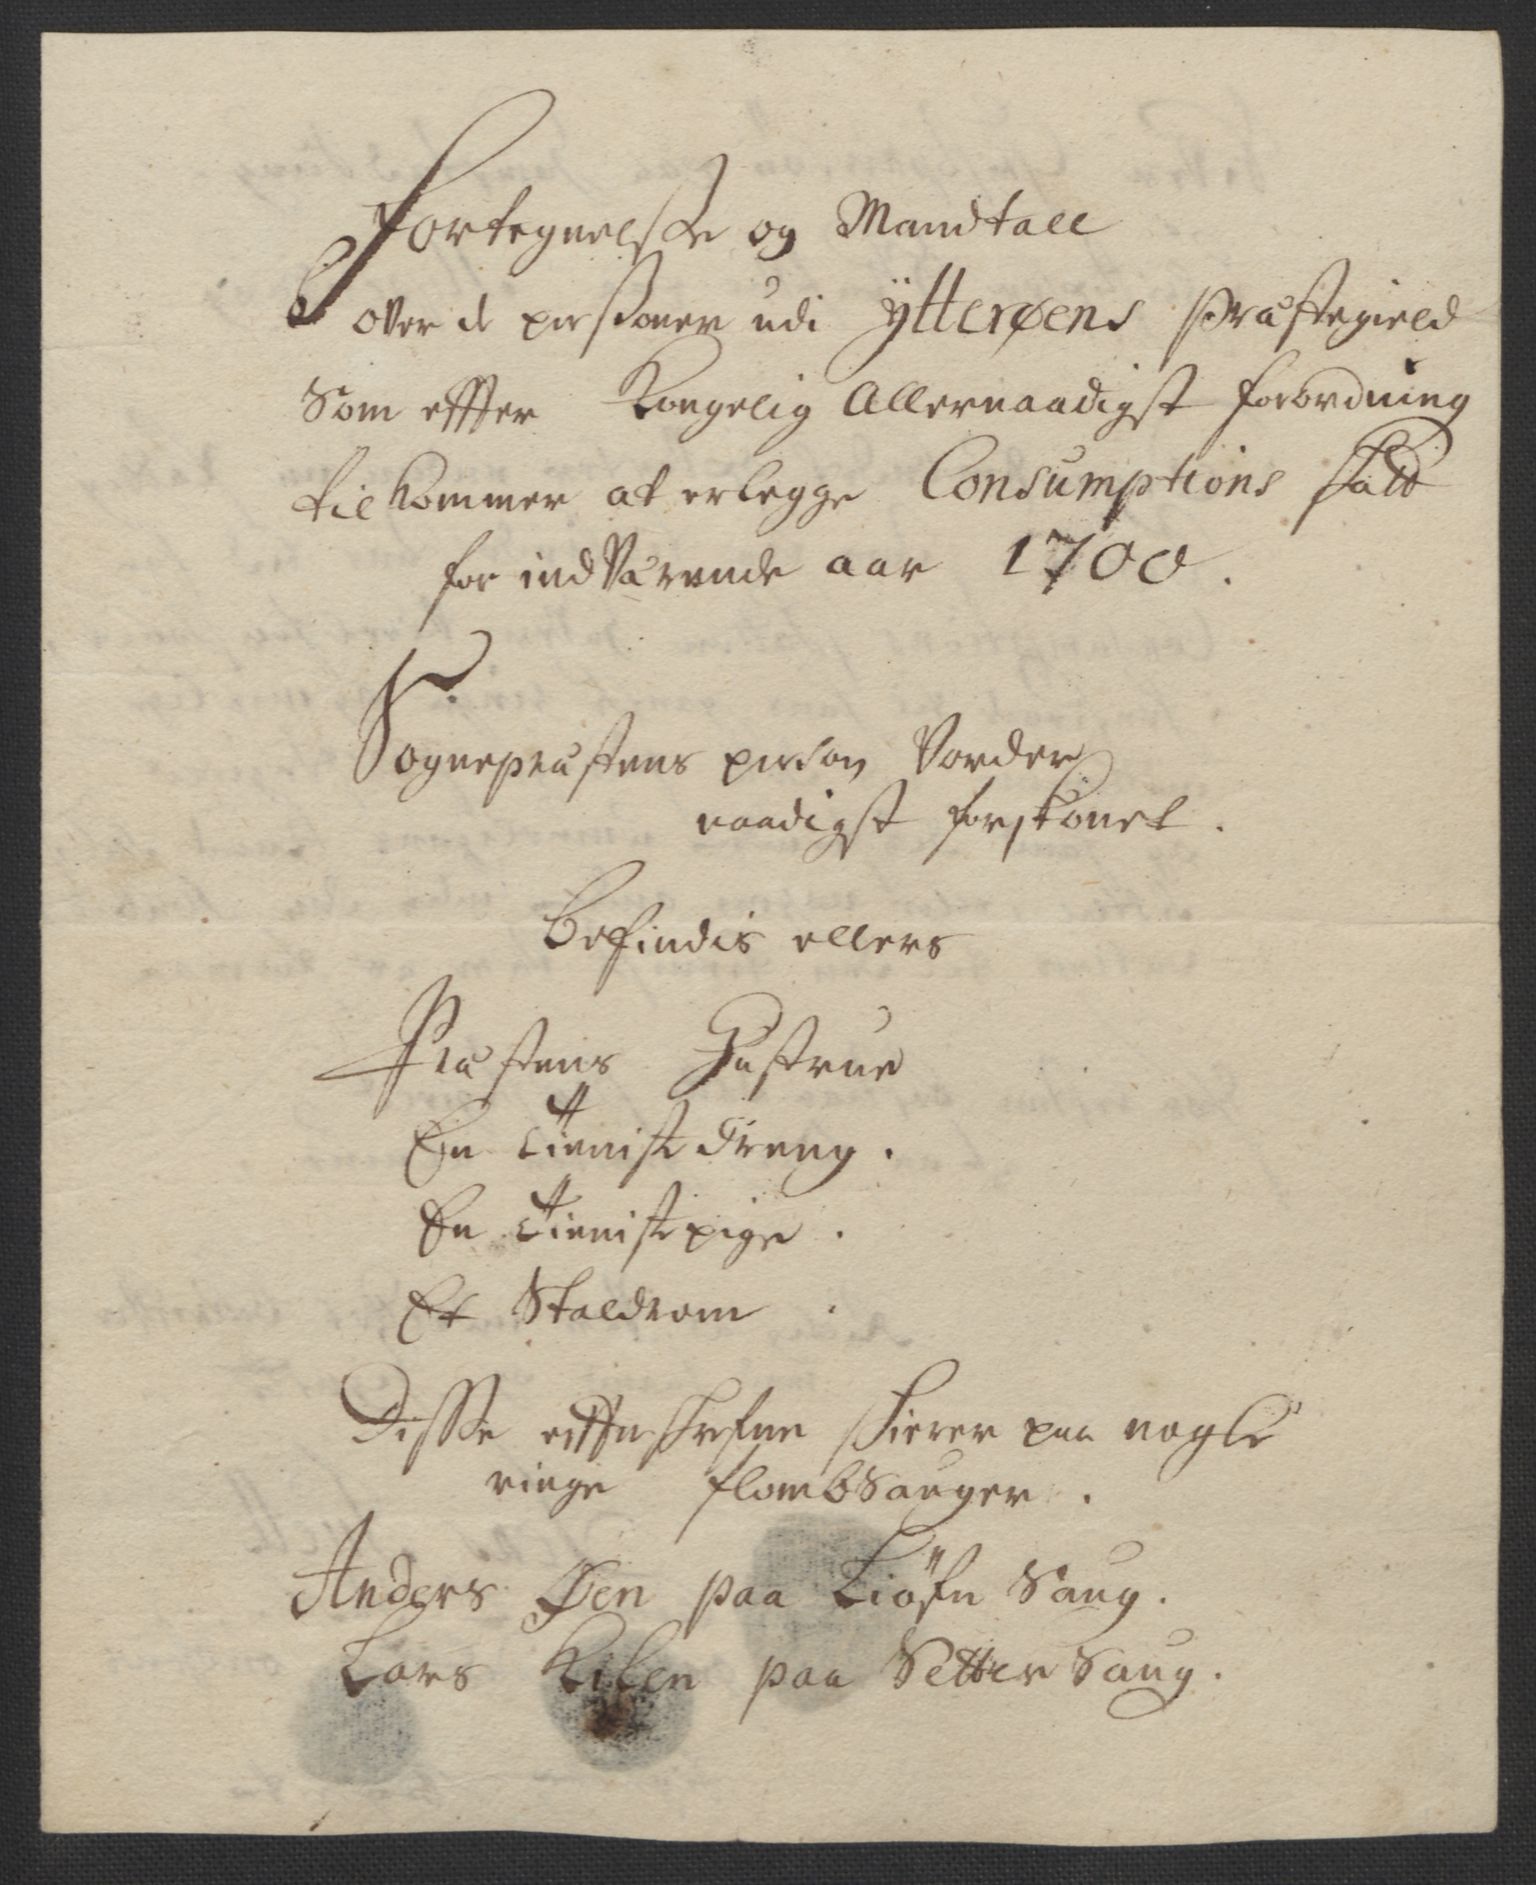 Fortegnelsse og Mandtall
over de personer udi Ytterøens Præstegield
Som effter Kongelig Allernaadigst forordning
tilkommer at erlegge Consumptions skatt
for indVærende aar 1700.
Sognepræstens person Vorder
naadigst forskonet.
Befindis ellers
Præstens Hustrue
En tieniste dreng.
En tieniste pige.
Et Staldrom
Disse effterskrefne skierer paa nogle
ringe flombSauger.
Anders Øen paa Liøfn Saug.
Lars Kilen paa Setter Saug.